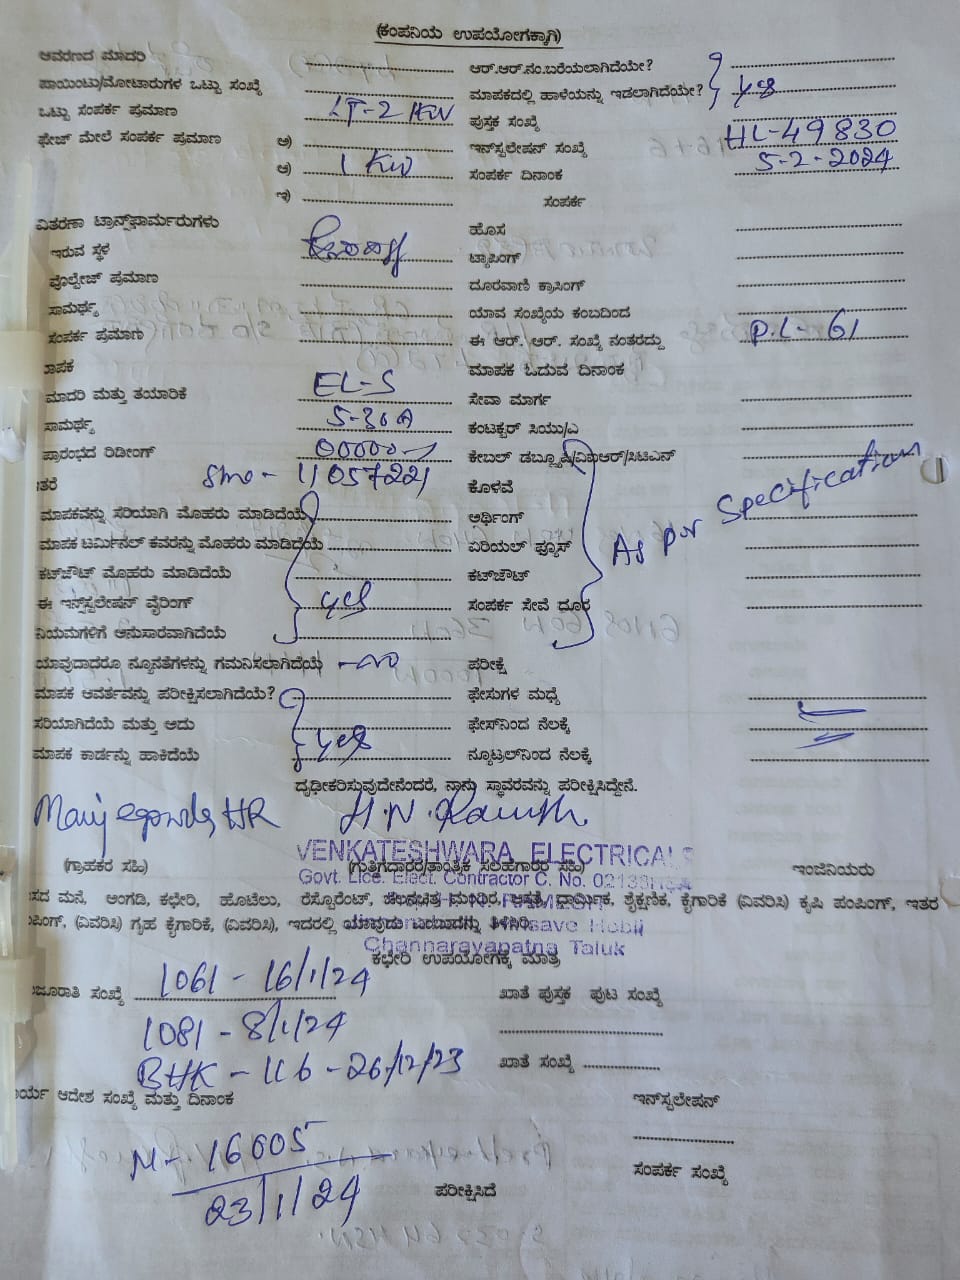 (ಕಂಪನಿಯ ಉಪಯೋಗಕ್ಕಾಗಿ)
ಆವರಣದ ಮಾದರಿ ಆರ್.ಆರ್.ನಂ.ಬರೆಯಲಾಗಿದೆಯೇ?
ಪಾಯಿಂಟು/ಮೋಟಾರುಗಳ ಒಟ್ಟು ಸಂಖ್ಯೆ ಮಾಪಕದಲ್ಲಿ ಹಾಳೆಯನ್ನು ಇಡಲಾಗಿದೆಯೇ? yes
ಒಟ್ಟು ಸಂಪರ್ಕ ಪ್ರಮಾಣ LT-2 1KW ಪುಸ್ತಕ ಸಂಖ್ಯೆ
ಫೇಜ್ ಮೇಲೆ ಸಂಪರ್ಕ ಪ್ರಮಾಣ ಅ) ಇನ್‌ಸ್ಟಲೇಷನ್ ಸಂಖ್ಯೆ HL-49830
ಆ) 1 KW ಸಂಪರ್ಕ ದಿನಾಂಕ 5-2-2024
ಇ) ಸಂಪರ್ಕ
ವಿತರಣಾ ಟ್ರಾನ್ಸ್‌ಫಾರ್ಮರುಗಳು ಹೊಸ
ಇರುವ ಸ್ಥಳ ಟ್ಯಾಪಿಂಗ್
ವೋಲ್ಟೇಜ್ ಪ್ರಮಾಣ ದೂರವಾಣಿ ಕ್ರಾಸಿಂಗ್
ಸಾಮರ್ಥ್ಯ ಯಾವ ಸಂಖ್ಯೆಯ ಕಂಬದಿಂದ
ಸಂಪರ್ಕ ಪ್ರಮಾಣ ಈ ಆರ್. ಆರ್. ಸಂಖ್ಯೆ ನಂತರದ್ದು P.L- 61
ಾಪಕ ಮಾಪಕ ಓದುವ ದಿನಾಂಕ
ಮಾದರಿ ಮತ್ತು ತಯಾರಿಕೆ EL-S ಸೇವಾ ಮಾರ್ಗ
ಸಾಮರ್ಥ್ಯ 5-30A ಕಂಟಕ್ಟರ್ ಸಿಯು/ಎ
ಪ್ರಾರಂಭದ ರಿಡೀಂಗ್ 00000-1 ಕೇಬಲ್ ಡಬ್ಲ್ಯೂಪಿ/ವಿಐಆರ್/ಸಿಟಿಎಸ್
ತರೆ Sno - 11057221 ಕೊಳವೆ
ಮಾಪಕವನ್ನು ಸರಿಯಾಗಿ ಮೊಹರು ಮಾಡಿದೆಯೆ ಅರ್ಥಿಂಗ್ As per Specification
ಮಾಪಕ ಟರ್ಮಿನಲ್ ಕವರನ್ನು ಮೊಹರು ಮಾಡಿದೆಯೆ ಏರಿಯಲ್ ಫ್ಯೂಸ್
ಕಟ್‌ಔಟ್ ಮೊಹರು ಮಾಡಿದೆಯೆ ಕಟ್‌ಔಟ್
ಈ ಇನ್ಸ್‌ಟಲೇಷನ್ ವೈರಿಂಗ್ yes ಸಂಪರ್ಕ ಸೇವೆ ದೂರ
ನಿಯಮಗಳಿಗೆ ಅನುಸಾರವಾಗಿದೆಯೆ
ಯಾವುದಾದರೂ ನ್ಯೂನತೆಗಳನ್ನು ಗಮನಿಸಲಾಗಿದೆಯೆ - no ಪರೀಕ್ಷೆ
ಮಾಪಕ ಆವರ್ತವನ್ನು ಪರೀಕ್ಷಿಸಲಾಗಿದೆಯೆ? ಫೇಸುಗಳ ಮಧ್ಯೆ
ಸರಿಯಾಗಿದೆಯೆ ಮತ್ತು ಅದು ಫೇಸ್‌ನಿಂದ ನೆಲಕ್ಕೆ
ಮಾಪಕ ಕಾರ್ಡನ್ನು ಹಾಕಿದೆಯೆ yes ನ್ಯೂಟ್ರಲ್‌ನಿಂದ ನೆಲಕ್ಕೆ
ದೃಢೀಕರಿಸುವುದೇನೆಂದರೆ, ನಾನು ಸ್ಥಾವರವನ್ನು ಪರೀಕ್ಷಿಸಿದ್ದೇನೆ.
Manjegowda HR H.N.Ramesh
VENKATESHWARA ELECTRICALS
(ಗ್ರಾಹಕರ ಸಹಿ) (ಗುತ್ತಿಗೆದಾರರ/ತಾಂತ್ರಿಕ ಸಲಹೆಗಾರರ ಸಹಿ) ಇಂಜಿನಿಯರು
Govt. Lice. Elect. Contractor C. No.
ಸದ ಮನೆ, ಅಂಗಡಿ, ಕಛೇರಿ, ಹೊಟೆಲು, ರೆಸ್ಟೊರೆಂಟ್, ಚಲನಚಿತ್ರ ಮಂದಿರ, ಆಸ್ಪತ್ರೆ, ಧಾರ್ಮಿಕ, ಶೈಕ್ಷಣಿಕ, ಕೈಗಾರಿಕೆ (ವಿವರಿಸಿ) ಕೃಷಿ ಪಂಪಿಂಗ್, ಇತರ
ಪಿಂಗ್, (ವಿವರಿಸಿ) ಗೃಹ ಕೈಗಾರಿಕೆ, (ವಿವರಿಸಿ), ಇದರಲ್ಲಿ ಯಾವುದು ಎಂಬುದನ್ನು ತಿಳಿಸಿರಿ.
Channarayapatna Taluk
ಕಛೇರಿ ಉಪಯೋಗಕ್ಕೆ ಮಾತ್ರ
ಜೂರಾತಿ ಸಂಖ್ಯೆ 1061 - 16/1/24 ಖಾತೆ ಪುಸ್ತಕ ಪುಟ ಸಂಖ್ಯೆ
1081 - 8/1/24
BHK - 116 - 26/12/23 ಖಾತೆ ಸಂಖ್ಯೆ
ರ್ಯ ಆದೇಶ ಸಂಖ್ಯೆ ಮತ್ತು ದಿನಾಂಕ ಇನ್‌ಸ್ಟಲೇಷನ್
M- 16605
23/1/24 ಪರೀಕ್ಷಿಸಿದೆ ಸಂಪರ್ಕ ಸಂಖ್ಯೆ